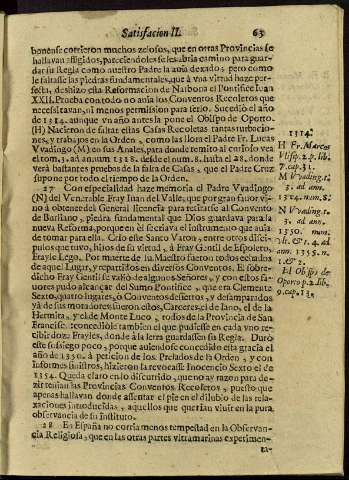 Satisfacion II. 63
bonense corrieron muchos zelosos, que en otras Provincias se
hallavan afligidos, pareciendoles se les abria camino para guar-
dar su Regla como nuestro Padre la avia dexado; pero como
le faltasse las piedras fundamentales, que à una virtud haze per-
fecta, deshizo esta Reformacion de Narbona el Pontifice Iuan
XXII. Prueba con todo no avia los Conventos Recoletos que
necessitavan, ni menos permission para serlo. Sucedio el año
de 1314. aunque un año antes la pone el Obispo de Oporto.
(H) Nacieron de faltar estas Casas Recoletas tantas turbacio-
nes, y trabajos en la Orden, como las llora el Padre Fr. Lucas
Vvadingo (M) en sus Anales, para donde remito al curioso vea
el tom. 3. ad annum 1318. desde el num. 8. hasta el 28. donde
verà bastantes pruebas de la falta de Casas, que el Padre Cruz
supone por todo el tiempo de la Orden.
27 Con especialidad haze memoria el Padre Vvadingo
(N) del Venerable Fray Iuan del Valle, que por gran favor vi-
no à obtener del General licencia para retirarse al Convento
de Burliano, piedra fundamental que Dios guardava para la
nueva Reforma, porque en el se criava el instrumento que avia
de tomar para ella. Criò este Santo Varon, entre otros disci-
pulos que tuvo, hijos de su virtud, à Fray Gentil de Espoleto,
Frayle Lego. Por muerte de su Maestro fueron todos echados
de aquel Lugar, y repartidos en diversos Conventos. El sobre-
dicho Fray Gentil se valiò de algunos Señores, y con estos fa-
vores pudo alcançar del Sumo Pontifice, que era Clemente
Sexto, quatro lugares, ò Conventos desiertos, y desamparados
yà de sus moradores: fueron estos, Carceres, el de Iano, el de la
Hermita, y el de Monte Luco, todos de la Provincia de San
Francisco: concediòle tambien el que pudiesse en cada uno re-
cibir doze Frayles, donde à la letra guardassen su Regla. Durò
este sosiego poco, porque aviendose concedido esta gracia el
año de 1350. à peticion de los Prelados de la Orden, y con
informes siniestros, hizieron la revocasse Inocencio Sexto el de
1354. Queda claro en lo discurrido, que no ay razon para de-
zir tenian las Provincias Conventos Recoletos, puesto que
apenas hallavan donde assentar el pie en el dilubio de las rela-
xaciones introducidas, aquellos que querian vivir en la pura
observancia de su Instituto.
28 En España no corria menos tempestad en la Observan-
cia Religiosa, que en las otras partes vltramarinas experimen-
ta-
1314.
H Fr. Marcos
Vlisp. 2. p. lib.
7. cap. 31.
M Vvading. t.
3. ad ann.
1314. num. 8.
N Vvading. t.
3. ad ann.
1350. num.
& t. 4. ad
ann. 1355. n.
1. & 2.
El Obispo de
Oporto p. 2. lib.
9. cap. 13.